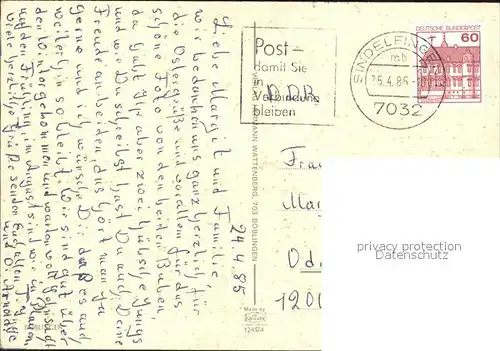 24.4.85
Liebe Margit und Familie
wir bedanken uns ganz herzlich für
die Ostergrüße und vorallen für das
schöne Foto von den beiden Buben
da habt Ihr aber zwei hübsche Jungs
und wie Du schreibst hast Du auch Deine
Freude an beiden das hört man ja
Gerne und ich wünsche Dir daß es auch
weiterhin so bleibt. Wir sind gut über
den Winter gekommen und warten voll Sehnsucht
auf den Frühling im August sind wir in Plauen
viele herzliche Grüße senden Euch allen
und
Post-
damit Sie
in
Verbindung
bleiben
DDR
SINDELFINGEN
mb
7032
DEUTSCHE BUNDESPOST
60
WATTENBERG, 703 BÖBLINGEN
Made by
Krüger
Frau
Od
1200
privacy protection
Datenschutz